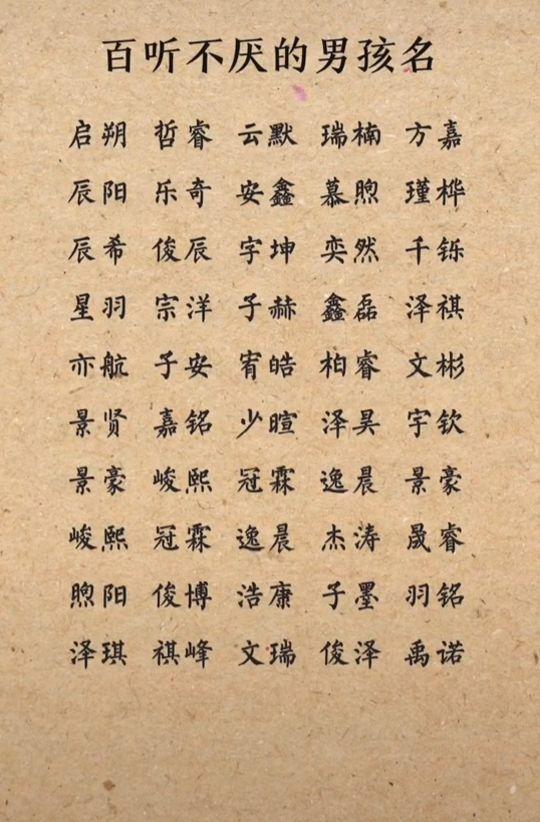 百听不厌的男孩名
启朔 哲睿 云默 瑞楠 方嘉
辰阳 乐奇 安鑫 慕煦 瑾桦
辰希 俊辰 宇坤 奕然 千铄
星羽 宗洋 子赫 鑫磊 泽祺
亦航 子安 宥皓 柏睿 文彬
景贤 嘉铭 少暄 泽昊 宇钦
景豪 峻熙 冠霖 逸晨 景豪
峻熙 冠霖 逸晨 杰涛 晟睿
煦阳 俊博 浩康 子墨 羽铭
泽琪 祺峰 文瑞 俊泽 禹诺